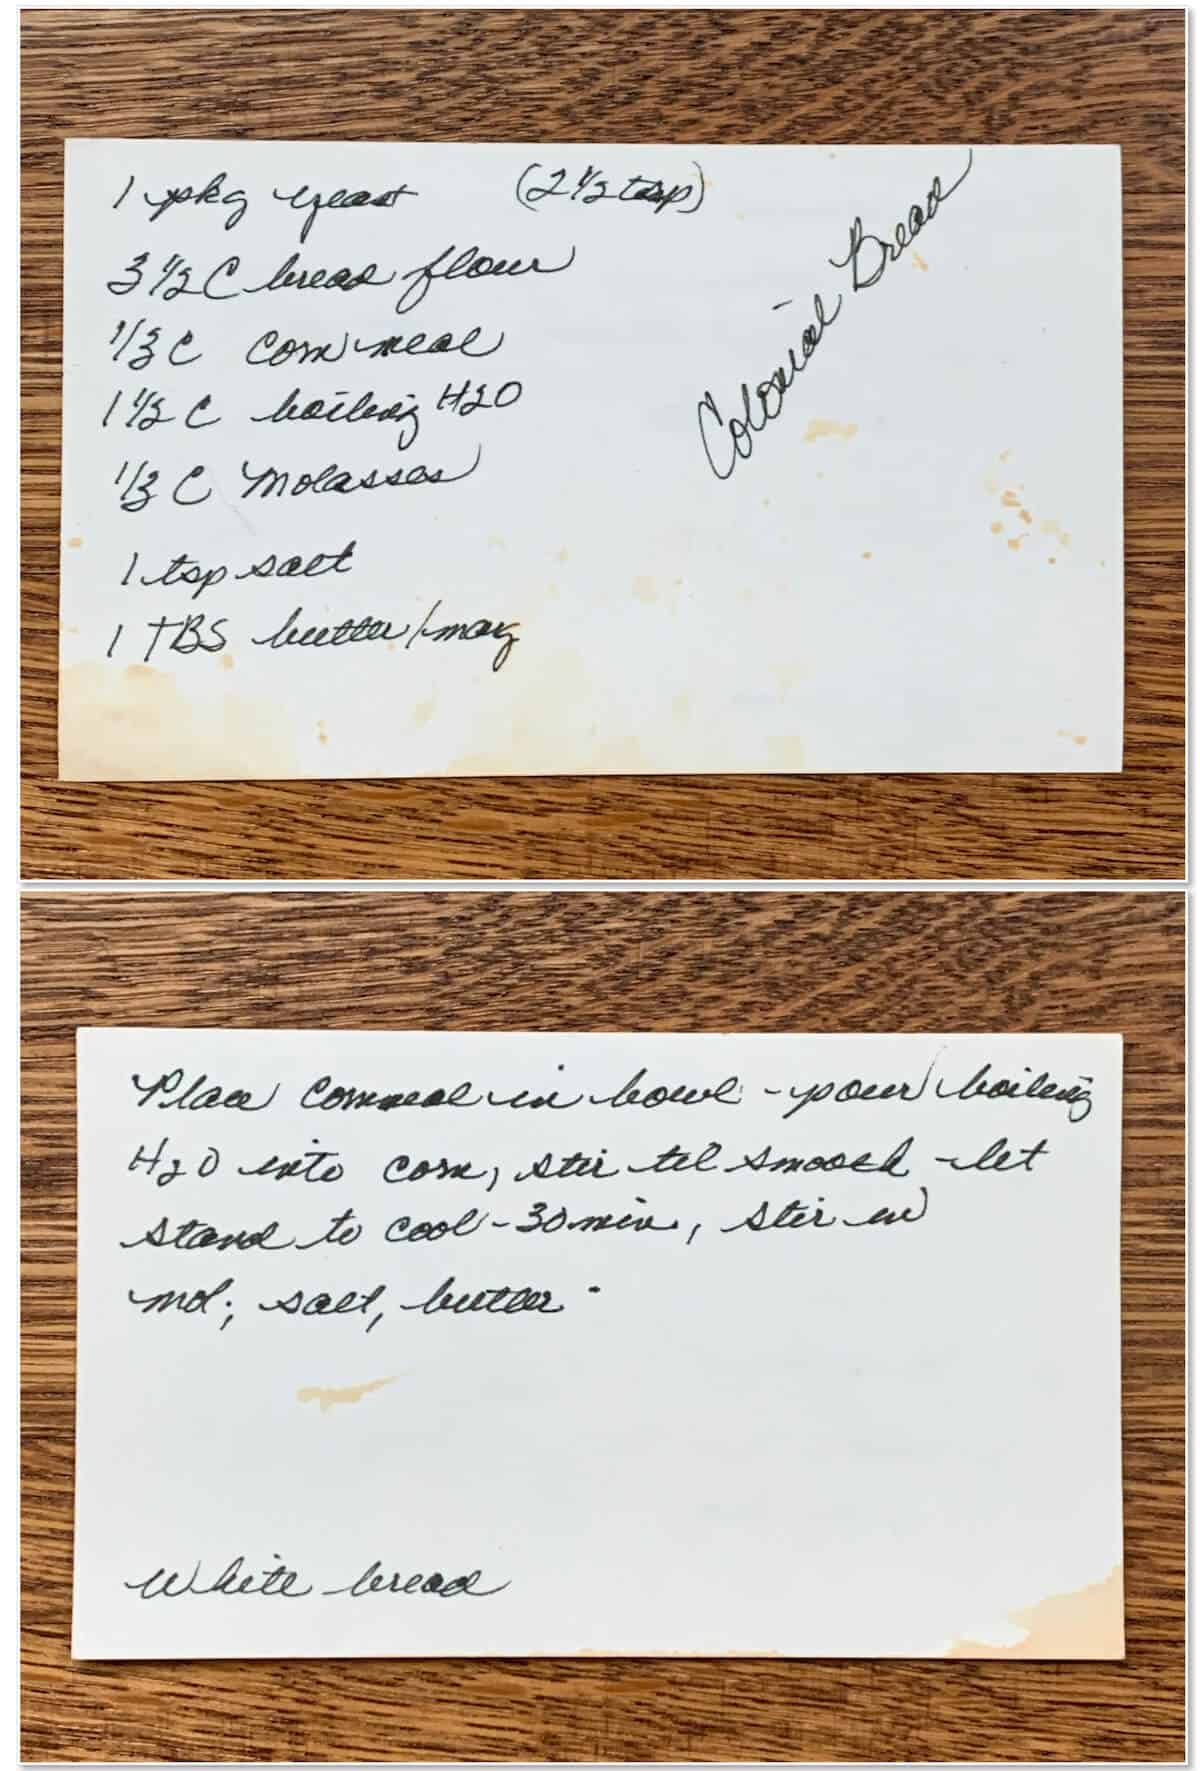 Colonial Bread
1 pkg yeast (2 1/2 tsp)
3 1/2 C bread flour
1/3 C corn meal
1 1/2 C boiling H2O
1/3 C Molasses
1 tsp salt
1 TBS butter/marg
Place cornmeal in bowl - pour boiling
H2O into corn, stir til smooth - let
stand to cool - 30 min, stir in
mol; salt, butter.
White bread